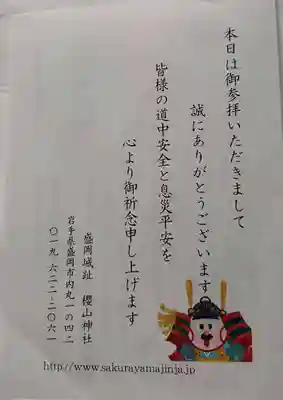 本日は御参拝いただきまして
誠にありがとうございます
皆様の道中安全と息災平安を
心より御祈念申し上げます
盛岡城址　櫻山神社
岩手県盛岡市内丸一の四二
〇一九-六二二-二〇六一
http://www.sakurayamajinja.jp